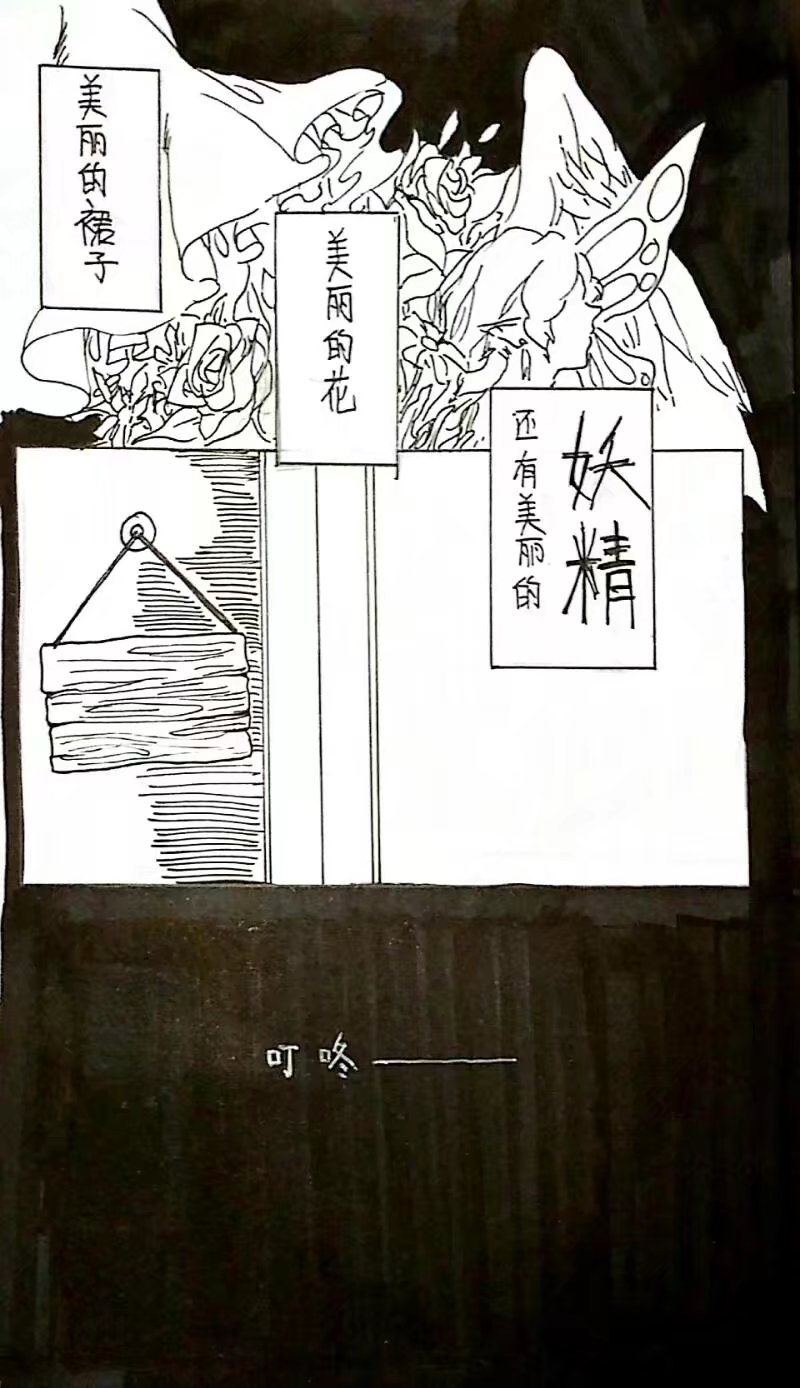 美丽的裙子
美丽的花
还有美丽的
妖精
叮咚——